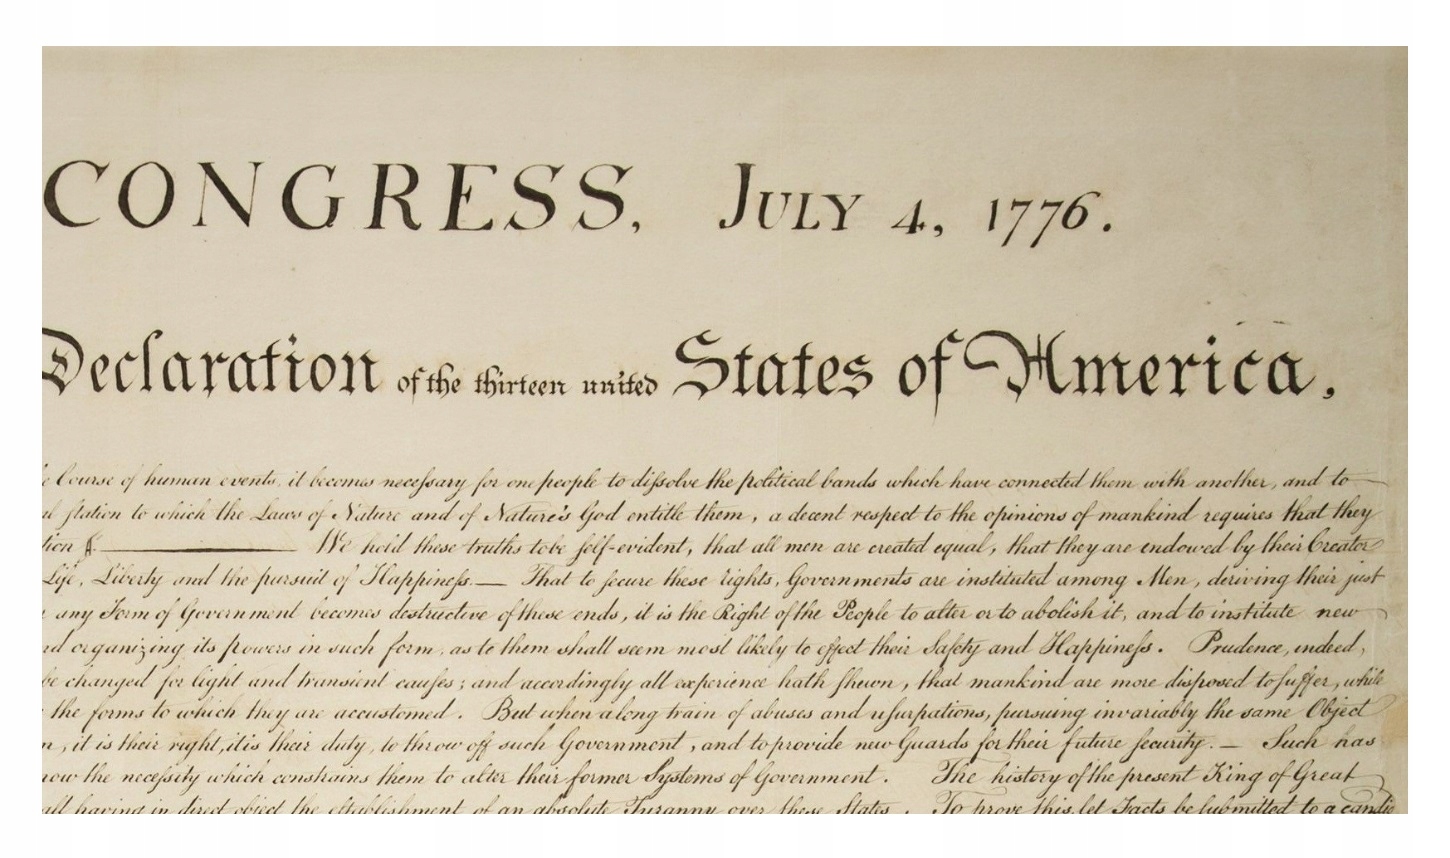 CONGRESS, JULY 4, 1776.
Declaration of the thirteen united States of America,
Course of human events, it becomes neceſsary for one people to diſsolve the political bands which have connected them with another, and to
ſtation to which the Laws of Nature and of Nature's God entitle them, a decent respect to the opinions of mankind requires that they
We hold these truths to be ſelf-evident, that all men are created equal, that they are endowed by their Creator
Life, Liberty and the pursuit of Happineſs.— That to ſecure these rights, Governments are instituted among Men, deriving their just
any Form of Government becomes destructive of these ends, it is the Right of the People to alter or to abolish it, and to institute new
organizing its powers in such form, as to them shall seem most likely to effect their Safety and Happineſs. Prudence, indeed,
be changed for light and transient cauſes; and accordingly all experience hath ſhewn, that mankind are more disposed to ſuffer, while
the forms to which they are accustomed. But when a long train of abuses and uſurpations, pursuing invariably the same Object
it is their right, it is their duty, to throw off such Government, and to provide new Guards for their future ſecurity.— Such has
now the neceſsity which constrains them to alter their former Systems of Government. The history of the present King of Great
all having in direct object the establishment of an absolute Tyranny over these States. To prove this, let Facts be ſubmitted to a candid